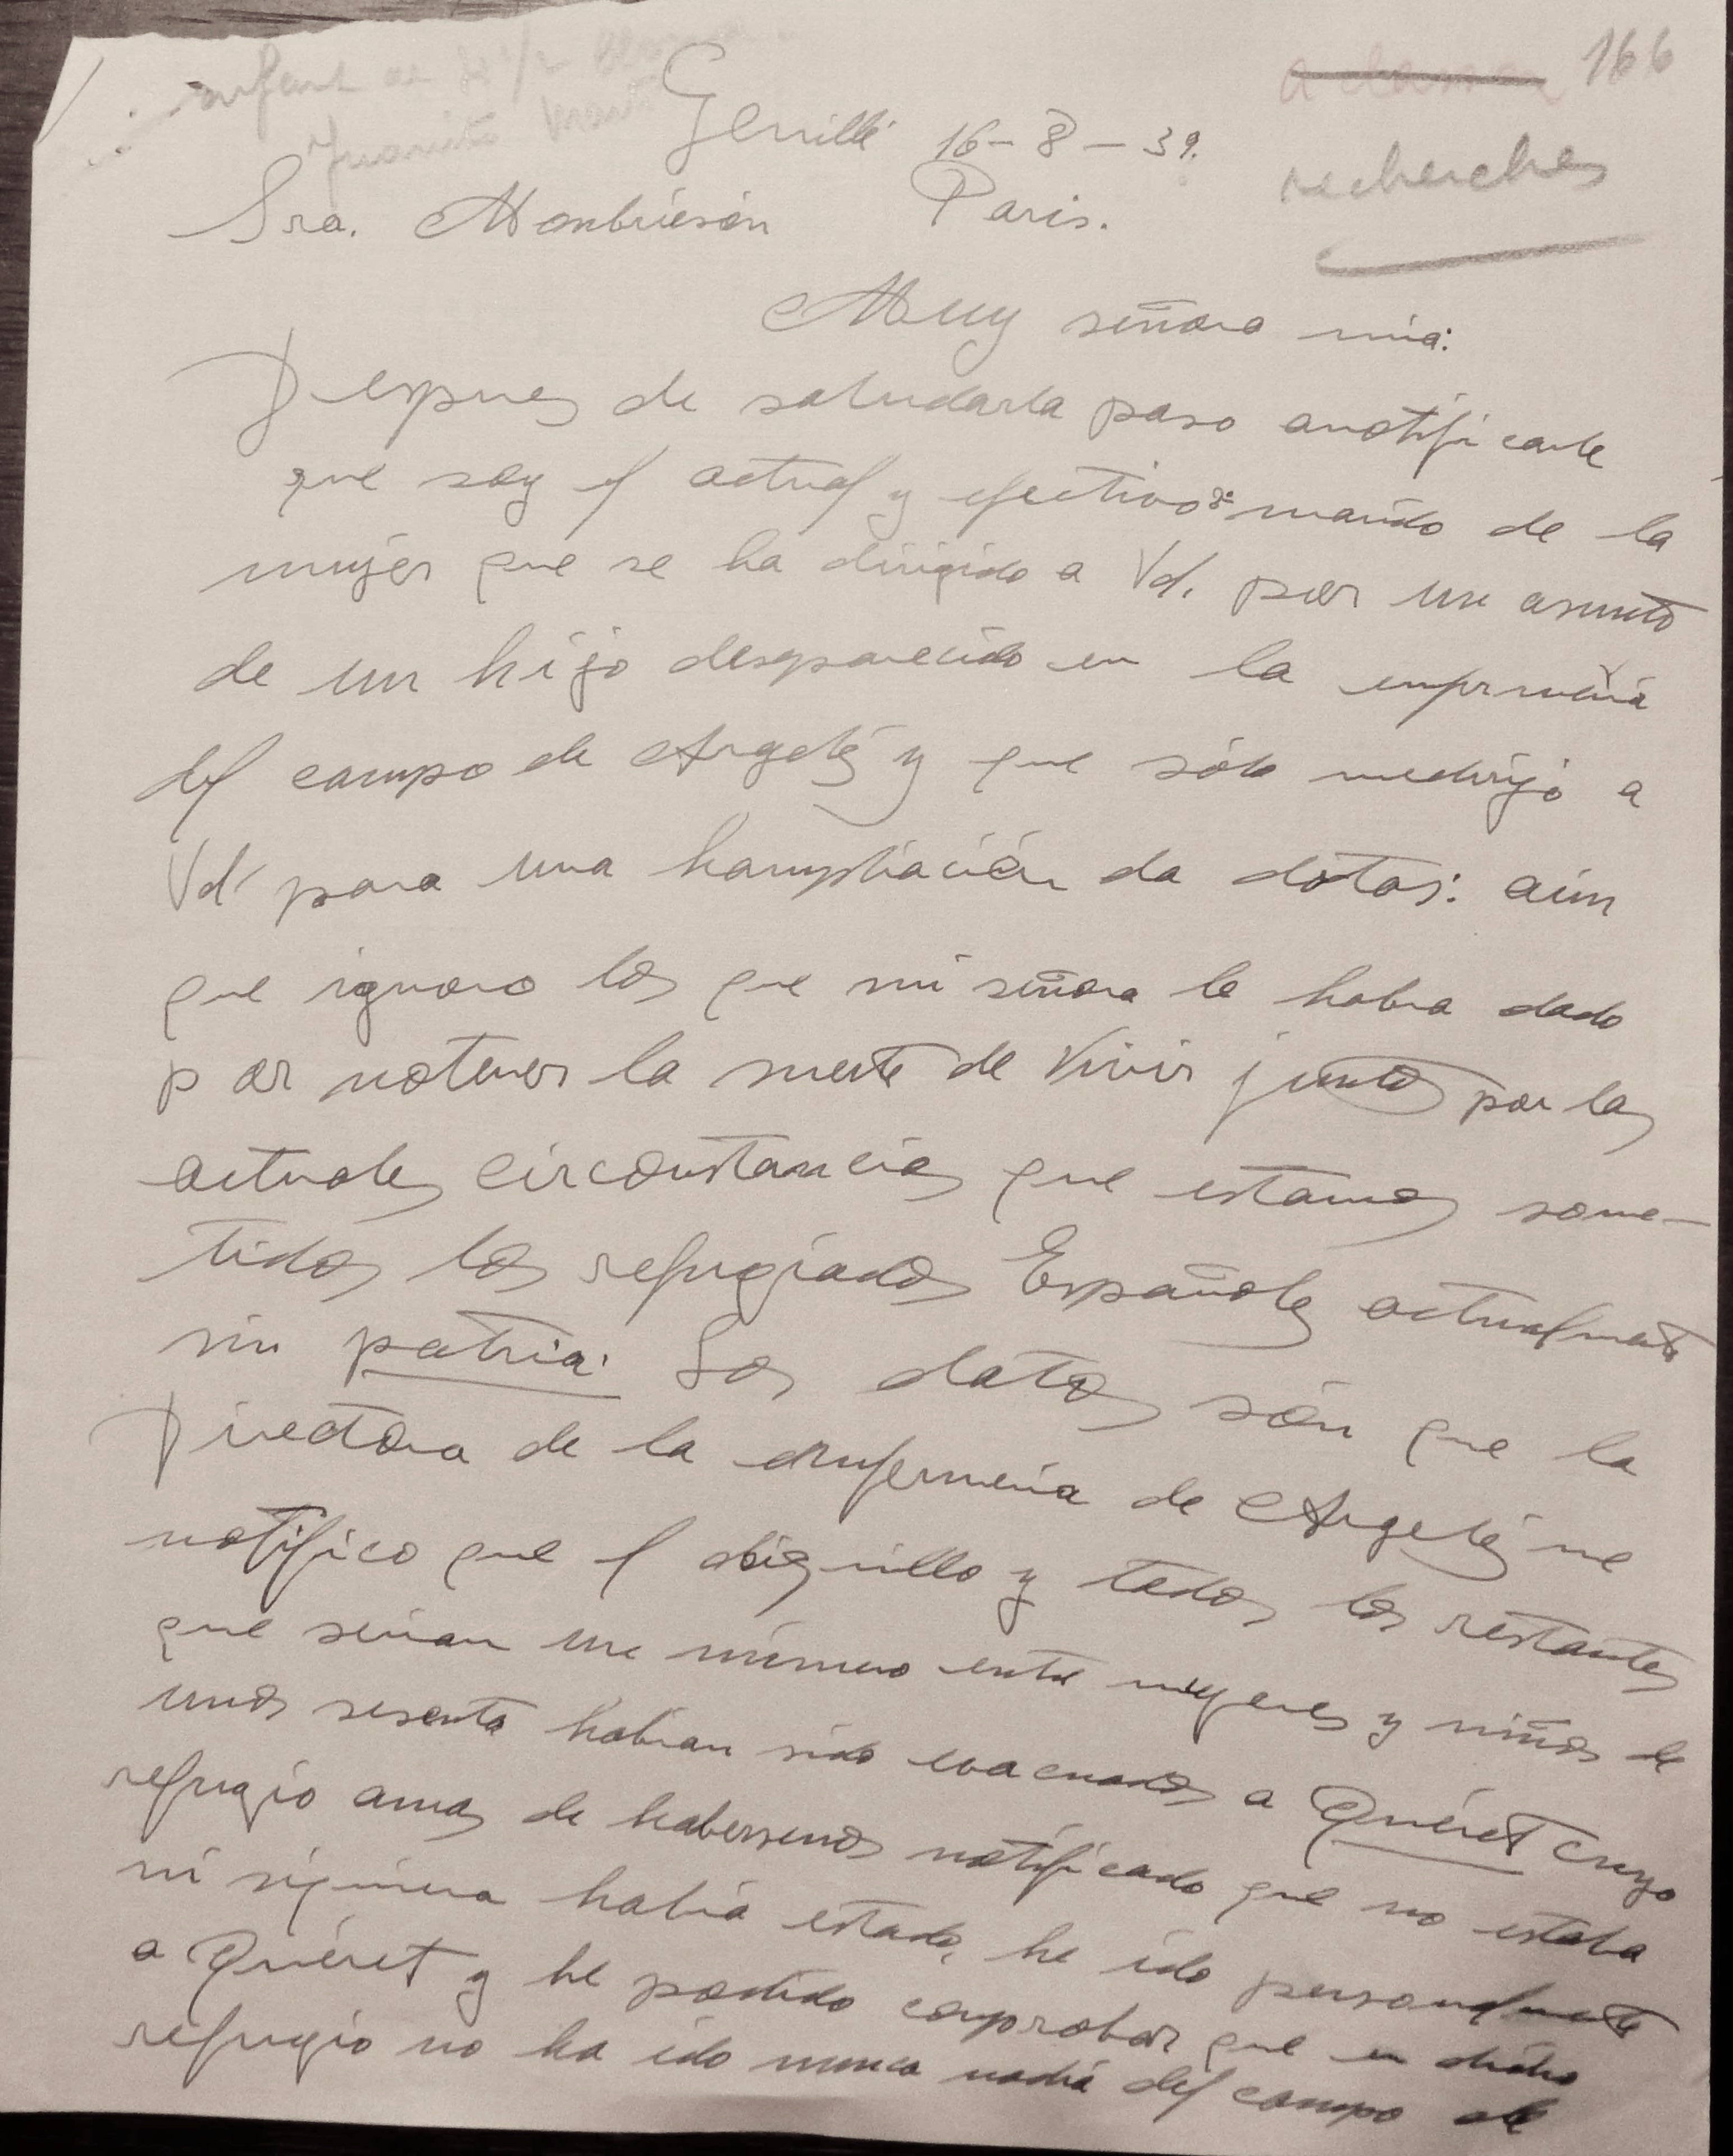 enfant de 2 1/2
Juanito
166
Genillé 16-8-39.
recherches
Sra. Monbrisón Paris.
Muy señora mia:
Despues de saludarla paso anotificarle
que soy el actual y efectivo 2º marido de la
mujer que se ha dirigido a Vd. por un asunto
de un hijo desaparecido en la enfermeria
del campo de Argelés y que sólo medirijo a
Vd. para una hampliación da datos: aún
que ignoro los que mi señora le habra dado
por notener la suerte de vivir juntos por las
actuales circonstancias que estamos some-
tidos los refugiados Españoles actualmente
sin patria. Los datos són que la
Directora de la enfermeria de Argelés me
notifico que el chiquillo y todos los restantes
que serian un número entre mujeres y niños de
unos sesenta habian sido evacuados a Quéret cuyo
refugio amas de habersenos notificado que no estaba
ni siquiera habia estado, he ido personalmente
a Quéret y he podido comprobar que en dicho
refugio no ha ido nunca nadia del campo de